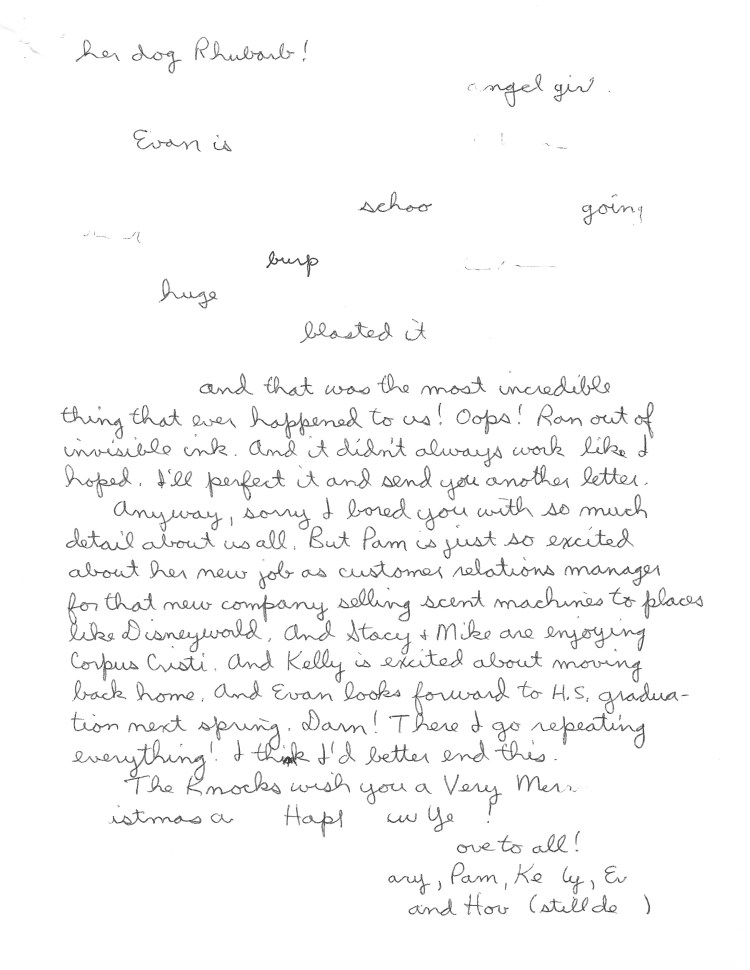 her dog Rhubarb!
angel gir
Evan is
schoo going
burp
huge
blasted it
and that was the most incredible
thing that ever happened to us! Oops! Ran out of
invisible ink. And it didn't always work like I
hoped. I'll perfect it and send you another letter.
Anyway, sorry I bored you with so much
detail about us all. But Pam is just so excited
about her new job as customer relations manager
for that new company selling scent machines to places
like Disneyworld. And Stacy + Mike are enjoying
Corpus Cristi. And Kelly is excited about moving
back home. And Evan looks forward to H.S. gradua-
tion next spring. Darn! There I go repeating
everything! I think I'd better end this.
The Knocks wish you a Very Mer
istmas a Hap w Ye !
ove to all!
ary, Pam, Ke ly, Ev
and How (still de )